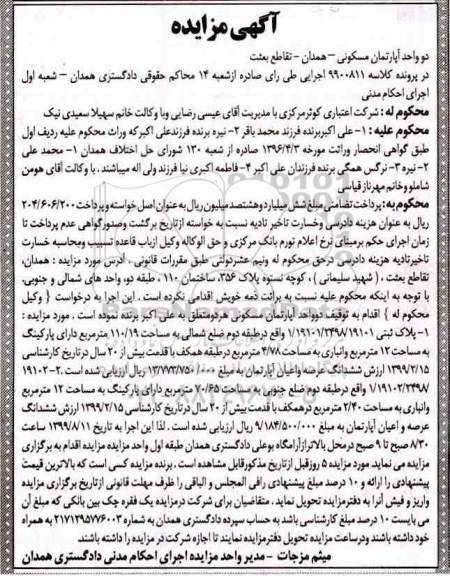 آگهی مزایده
دو واحد آپارتمان مسکونی – همدان – تقاطع بعثت
در پرونده کلاسه ۹۹۰۰۸۱۱ اجرایی طی رای صادره ازشعبه ۱۴ محاکم حقوقی دادگستری همدان – شعبه اول
اجرای احکام مدنی
محکوم له : شرکت اعتباری کوثرمرکزی با مدیریت آقای عیسی رضایی وبا وکالت خانم سهیلا سعیدی نیک
محکوم علیه : ۱- علی اکبربرنده فرزند محمد باقر ۲- نیره برنده فرزندعلی اکبرکه وراث محکوم علیه ردیف اول
طبق گواهی انحصار وراثت مورخه ۱۳۹۶/۴/۳ صادره از شعبه ۱۳۰ شورای حل اختلاف همدان ۱- محمد علی
۲- نیره ۳- نرگس همگی برنده فرزندان علی اکبر ۴- فاطمه اکبری نیا فرزند ولی اله میباشند . با وکالت آقای هومن
شاملو وخانم مهرناز قیاسی
محکوم به : پرداخت تضامنی مبلغ شش میلیارد وهشتصد میلیون ریال به عنوان اصل خواسته و پرداخت ۲۰۴/۶۰۶/۲۰۰
ریال به عنوان هزینه دادرسی وخسارت تاخیر تادیه نسبت به خواسته ازتاریخ برگشت وصدورگواهی عدم پرداخت تا
زمان اجرای حکم برمبنای نرخ اعلام تورم بانک مرکزی و حق الوکاله وکیل ازباب قاعده تسبیب ومحاسبه خسارت
تاخیرتادیه هزینه دادرسی درحق محکوم له ونیم عشردولتی طبق مقررات قانونی . آدرس مورد مزایده : همدان،
تقاطع بعثت ، ( شهید سلیمانی ) ، کوچه نستوه پلاک ۳۵۶، ساختمان ۱۱۰ ، طبقه دو، واحد های شمالی و جنوبی،
با توجه به اینکه محکوم علیه نسبت به برائت ذمه خویش اقدامی نکرده است . این اجرا به درخواست ( وکیل
محکوم له ) اقدام به توقیف دوواحد آپارتمان مسکونی هردومتعلق به علی اکبر برنده نموده است . مورد مزایده :
۱- پلاک ثبتی ۱/۱۹۱۰۱/۲۴۹۸/۱۹۱۰۱ واقع درطبقه دوم ضلع شمالی به مساحت ۱۱۰/۱۹ مترمربع دارای پارکینگ
به مساحت ۱۲ مترمربع وانباری به مساحت ۴/۷۸ مترمربع درطبقه همکف با قدمت بیش از ۲۰ سال درتاریخ کارشناسی
۱۳۹۹/۲/۱۵ ارزش ششدانگ عرصه واعیان آپارتمان به مبلغ ۱۳/۷۷۳/۷۵۰/۰۰۰ ریال ارزیابی شده است . ۲- ۱۹۱۰۲
/۱/۱۹۱۰۲/۲۴۹۸ واقع درطبقه دوم ضلع جنوبی به مساحت ۷۰/۶۵ مترمربع دارای پارکینگ به مساحت ۱۲ مترمربع
وانباری به مساحت ۲/۴۰ مترمربع درهمکف با قدمت بیش از ۲۰ سال درتاریخ کارشناسی ۱۳۹۹/۲/۱۵ ارزش ششدانگ
عرصه و اعیان آپارتمان به مبلغ ۹/۱۸۴/۵۰۰/۰۰۰ ریال ارزیابی شده است . لذا این اجرا به تاریخ ۱۳۹۹/۸/۱۱ ساعت
۸/۳۰ صبح تا ۹ صبح درمحل بالاتراز آرامگاه بوعلی دادگستری همدان طبقه اول واحد مزایده مزایده اقدام به برگزاری
مزایده می نماید. مورد مزایده ۵ روزقبل ازتاریخ مذکورقابل مشاهده است . برنده مزایده کسی است که بالاترین قیمت
پیشنهادی را ارائه و ۱۰ درصد مبلغ پیشنهادی رافی المجلس و الباقی را ظرف مهلت قانونی ازتاریخ برگزاری مزایده
واریز و فیش آنرا به دفترمزایده تحویل نماید. متقاضیان برای شرکت درمزایده یک فقره چک بین بانکی که مبلغ آن
می بایست ۱۰ درصد مبلغ کارشناسی باشد به حساب سپرده دادگستری همدان به شماره ۲۱۷۱۲۹۵۷۷۶۰۰۳ به همراه
خود داشته باشند ودرساعت مزایده تحویل دفترمزایده نمایند تا اجازه شرکت در مزایده را داشته باشند
میثم مزجات – مدیر واحد مزایده اجرای احکام مدنی دادگستری همدان